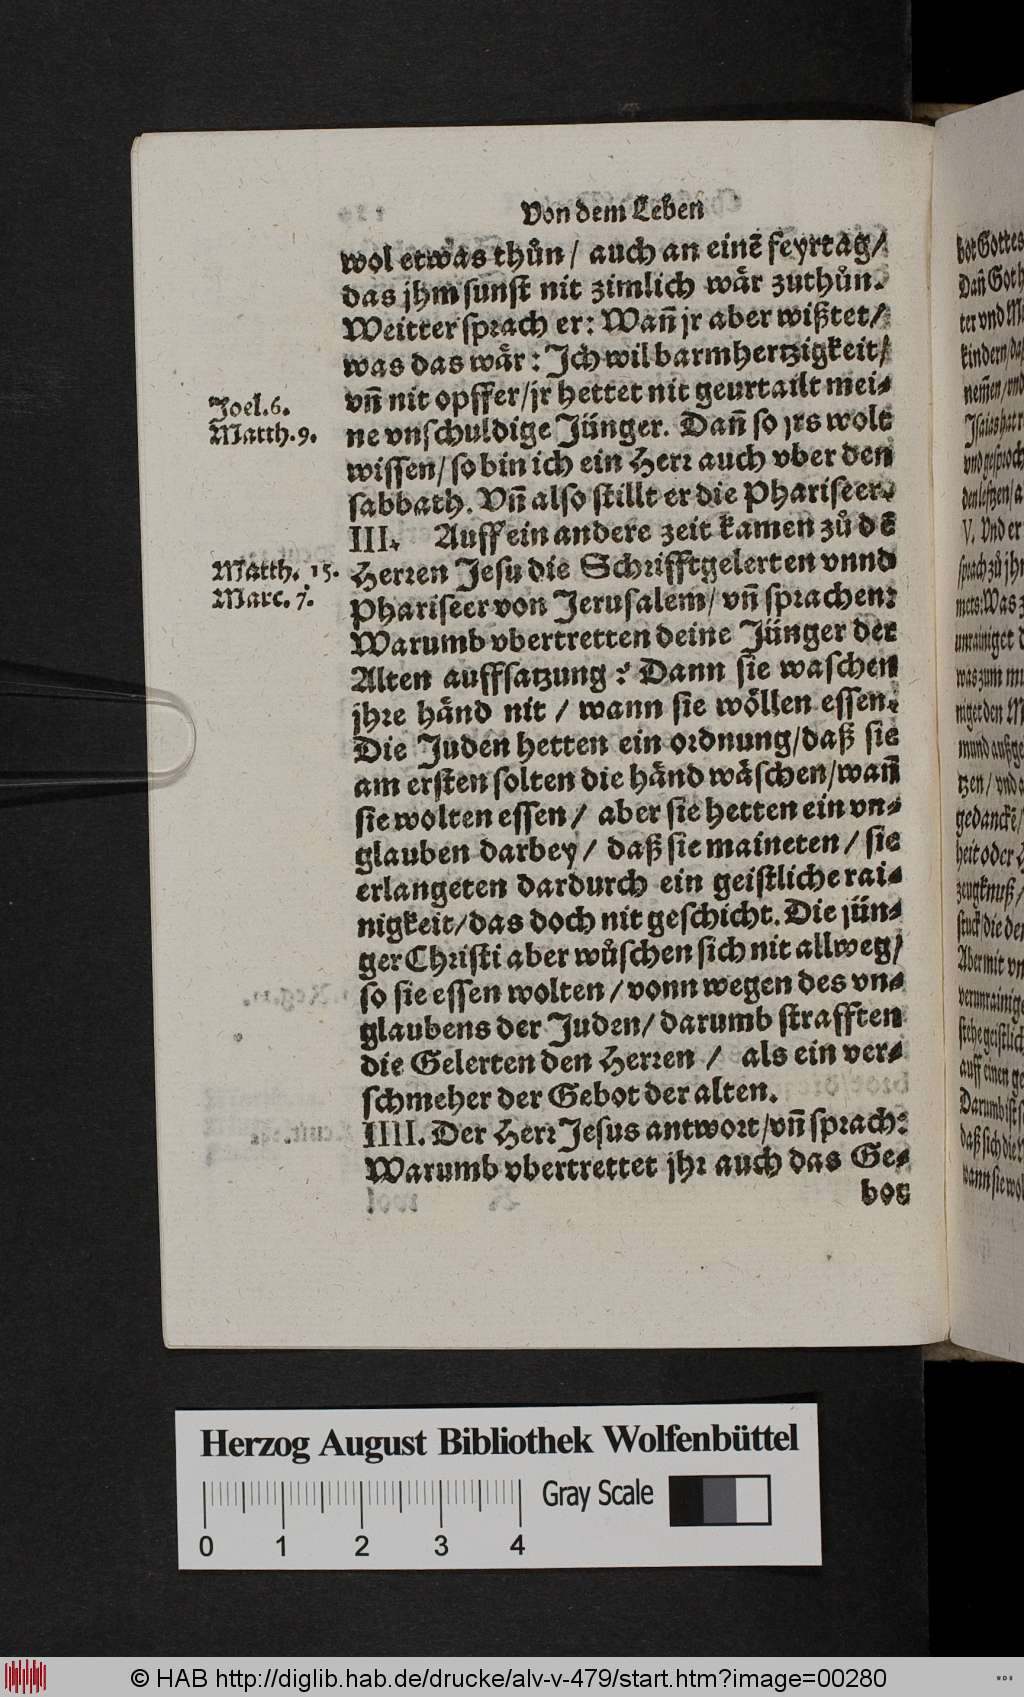 Von dem Leben
wol etwas thůn / auch an einē feyrtag /
das jhm sunst nit zimlich wär zuthůn.
Weitter sprach er: Wañ jr aber wißtet /
was das wär: Ich wil barmhertzigkeit /
vñ nit opffer / jr hettet nit geurtailt mei-
Joel. 6.
Matth. 9.
ne vnschuldige Jünger. Dañ so jrs wolt
wissen / so bin ich ein Herr auch vber den
sabbath. Vñ also stillt er die Phariseer.
III. Auff ein andere zeit kamen zů dē
Matth. 15.
Marc. 7.
Herren Jesu die Schrifftgelerten vnnd
Phariseer von Jerusalem / vñ sprachen:
Warumb vbertretten deine Jünger der
Alten auffsatzung? Dann sie waschen
jhre händ nit / wann sie wöllen essen.
Die Juden hetten ein ordnung / daß sie
am ersten solten die händ wäschen / wañ
sie wolten essen / aber sie hetten ein vn-
glauben darbey / daß sie maineten / sie
erlangeten dardurch ein geistliche rai-
nigkeit / das doch nit geschicht. Die jün-
ger Christi aber wůschen sich nit allweg /
so sie essen wolten / vonn wegen des vn-
glaubens der Juden / darumb strafften
die Gelerten den Herren / als ein ver-
schmeher der Gebot der alten.
IIII. Der Herr Jesus antwort / vñ sprach:
Warumb vbertrettet jhr auch das Ge-
bot
bot Gottes
Dañ Got h
ter vnd M
kindern / da
nemmen / vnd
V. Vnd er
sprach zů jhn
was zum mu
niget den M
mund außge
tzen / vnd
gedanckē /
heit oder
zeugknuß /
stuck / die der
Aber mit vn
verunrainige
stehe geistlich
auff einen ge
Darumb ist s
daß sich die
wann sie wol
Herzog August Bibliothek Wolfenbüttel
Gray Scale
0 1 2 3 4
© HAB http://diglib.hab.de/drucke/alv-v-479/start.htm?image=00280